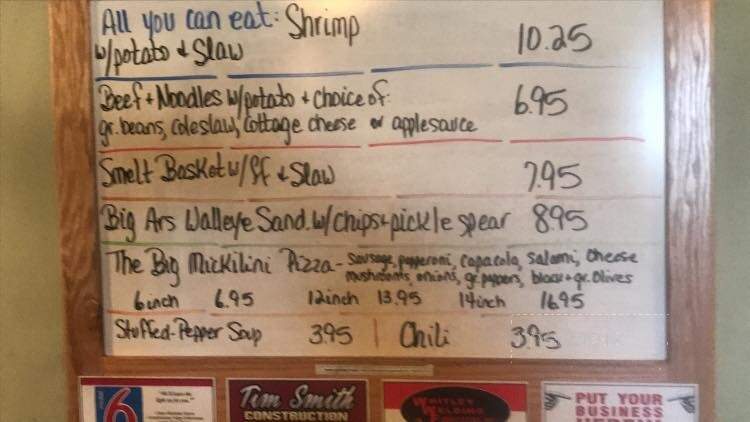 All you can eat: Shrimp
w/potato & Slaw 10.25
Beef + Noodles w/potato + choice of: 6.95
gr. beans, coleslaw, Cottage cheese or applesauce
Smelt Basket w/ff & Slaw 7.95
Big Ars Walleye Sand. w/chips + pickle spear 8.95
The Big Mickilini Pizza - Sausage, pepperoni, Capacola, Salami, Cheese
mushrooms, onions, gr. peppers, black + gr. Olives
6 inch 6.95 12 inch 13.95 14 inch 16.95
Stuffed-Pepper Soup 3.95 | Chili 3.95
6
Tim Smith
CONSTRUCTION
WHITLEY
WELDING
PUT YOUR
BUSINESS